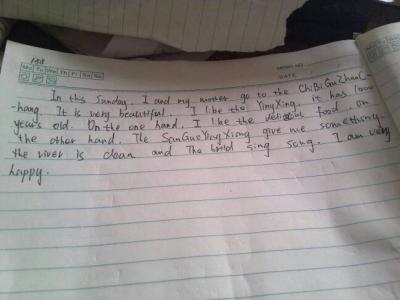 Mo Tu We Th Fr Sa Su
MEMO NO.
DATE
In this Sunday, I and my mother go to the ChiBiGuZhanC-
-hang. It is very beautiful. I like the YingXing, it has 1000
years old. On the one hand, I like the food, on
the other hand, The SanGuoYingXiong give me something.
the river is clean and The bird sing song. I am very
happy.